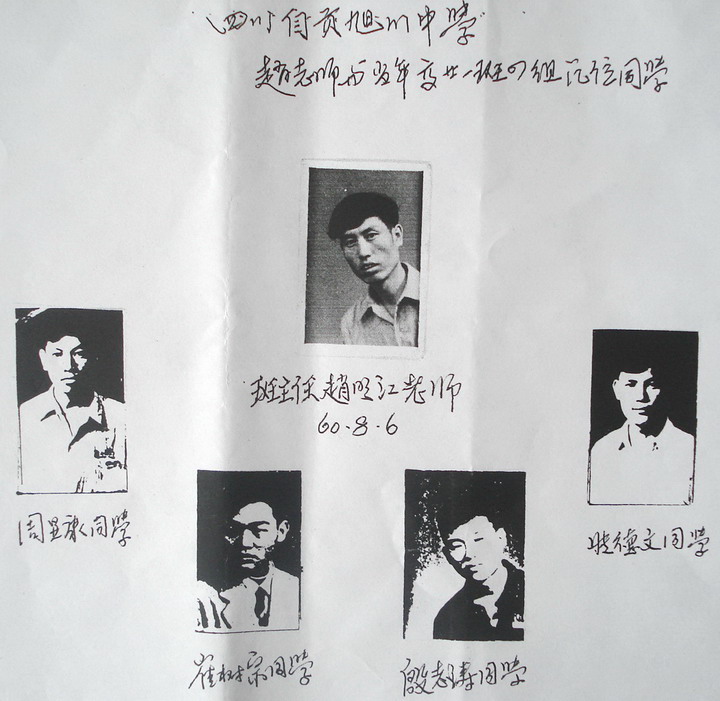 四川自贡旭川中学
赵老师与五年度廿一班四组同学
班主任趙明江老师
60·8·6
周显承同学
德文同学
崔树宗同学
殷志涛同学